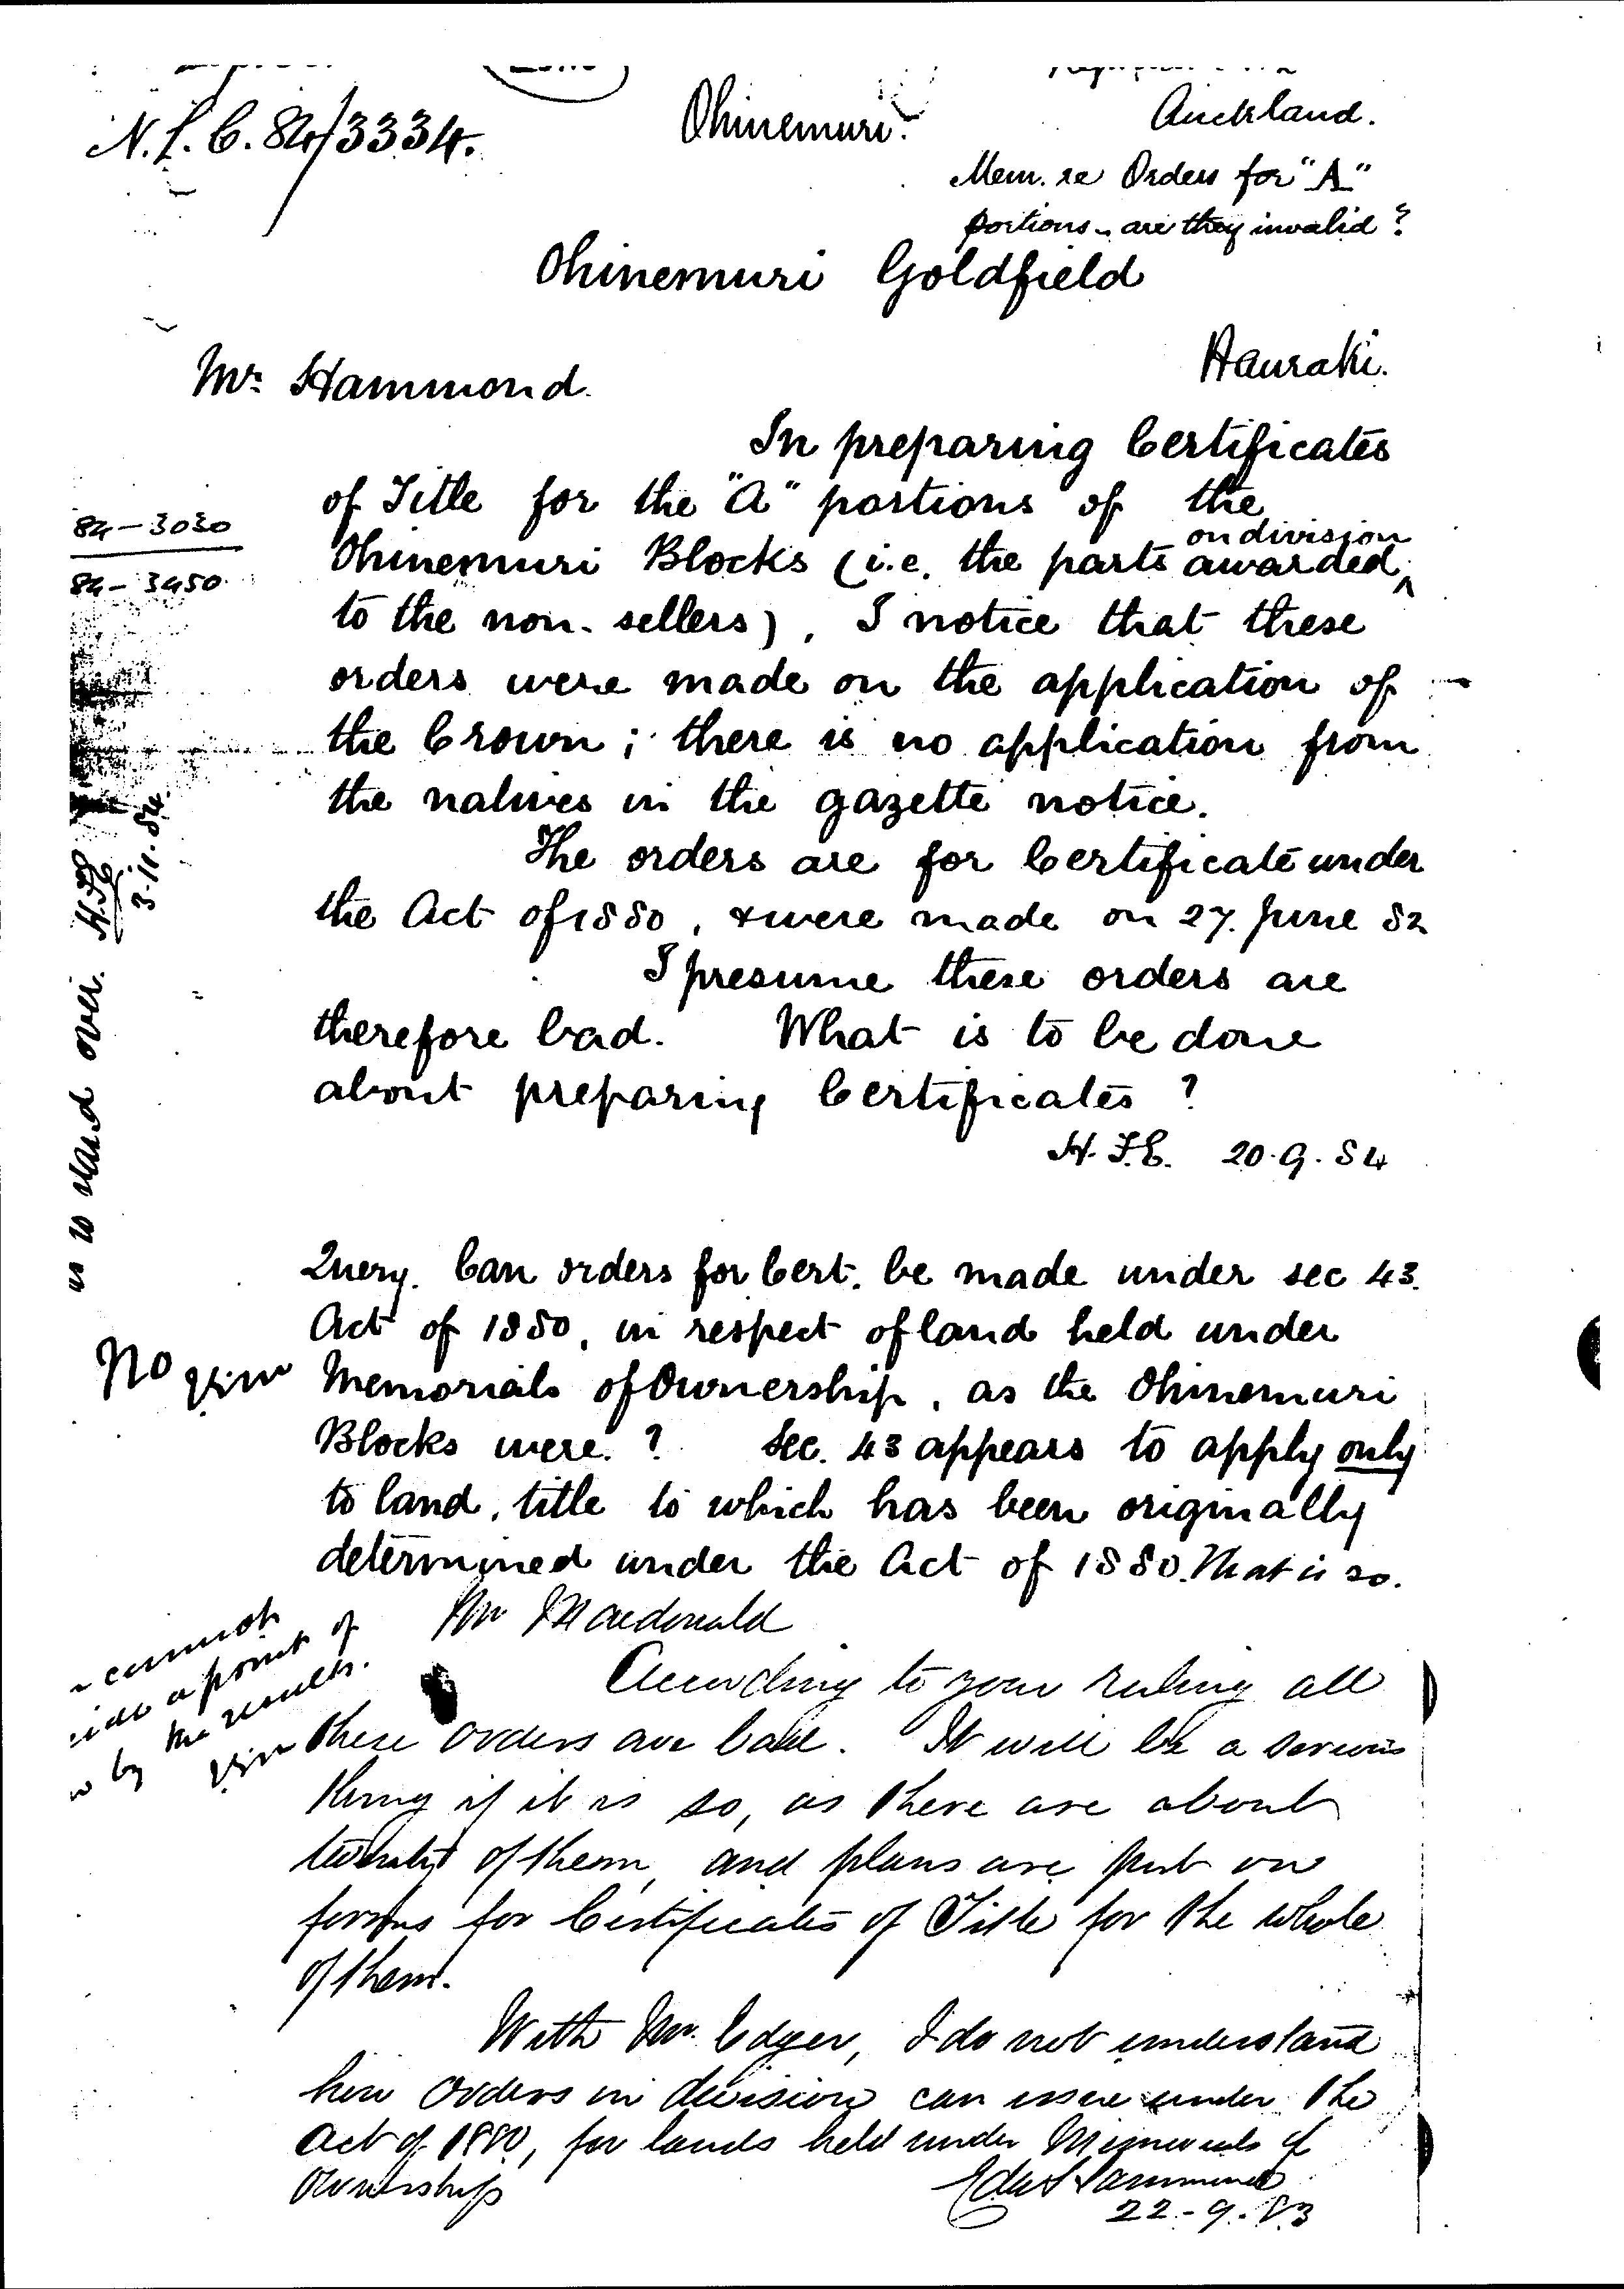 N.L.C. 84/3334.
Ohinemuri.
Auckland.
Mem. re Orders for "A"
portions – are they invalid?
Ohinemuri Goldfield
Hauraki.
Mr. Hammond.
In preparing Certificates
of Title for the "A" portions of the
Ohinemuri Blocks (i.e. the parts awarded on division
to the non-sellers), I notice that these
orders were made on the application of
the Crown; there is no application from
the natives in the gazette notice.
The orders are for Certificate under
the Act of 1880, & were made on 27. June 82
I presume these orders are
therefore bad. What is to be done
about preparing Certificates?
H.F.E. 20.9.84
84–3030
84–3450
is to stand over. H.F.E.
3.11.84
Query. Can orders for Cert. be made under sec 43.
Act of 1880, in respect of land held under
Memorials of Ownership, as the Ohinemuri
Blocks were.? Sec. 43 appears to apply only
to land, title to which has been originally
determined under the Act of 1880. That is so.
No
Mr Macdonald
According to your ruling all
these orders are bad. It will be a serious
thing if it is so, as there are about
twenty of them, and plans are put on
forms for Certificates of Title for the whole
of them.
cannot
a point of
by the results.
With Mr. Edger, I do not understand
how Orders on division can issue under the
Act of 1880, for lands held under Memorials of
Ownership
Edw Hammond
22-9-83